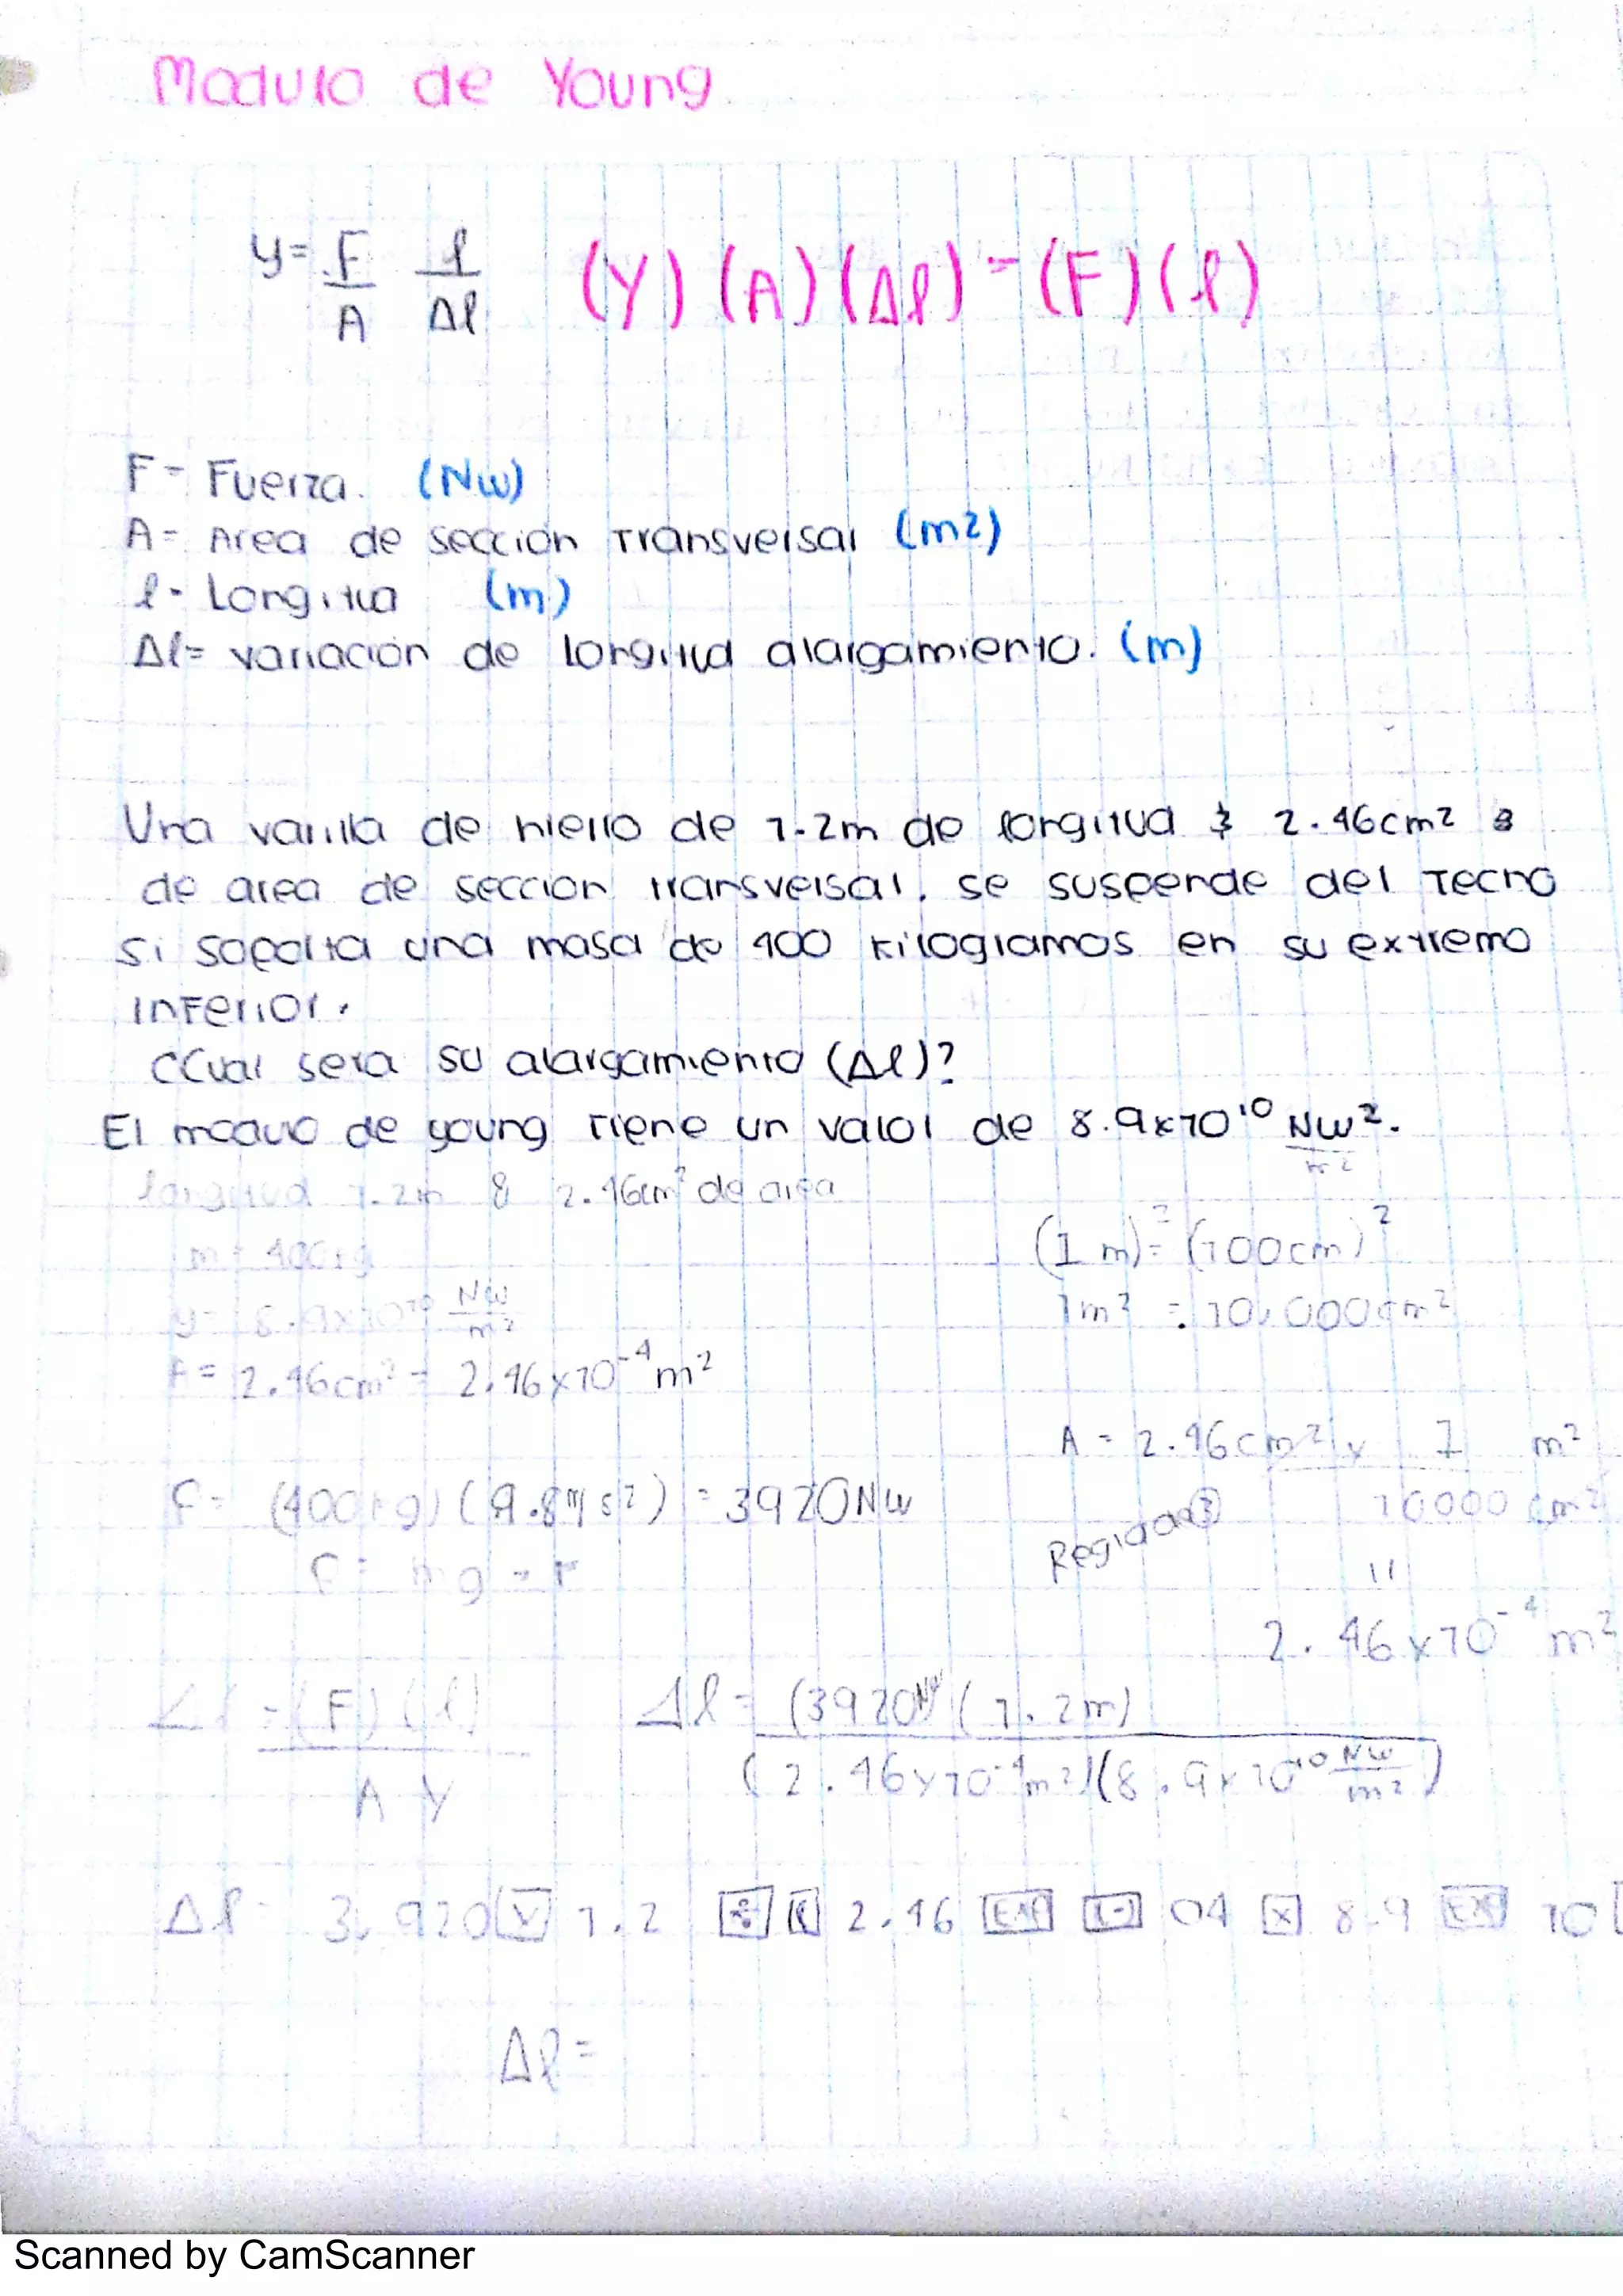 Modulo de Young
y= F/A l/Δl (Y)(A)(Δl)=(F)(l)
F= Fuerza. (Nw)
A= Area de sección Transversal (m2)
l= Longitud (m)
Δl= variación de longitud alargamiento. (m)
Una varilla de hierro de 1.2m de longitud & 2.46cm2
de area de sección transversal, se suspende del Techo
si soporta una masa de 400 kilogramos en su extremo
inferior,
¿Cual sera su alargamiento (Δl)?
El modulo de young tiene un valor de 8.9x10¹⁰ Nw²/m².
longitud 1.2m & 2.46cm² de area
(1 m)² = (100cm)²
m= 400kg
1m² = 10,000cm²
y= 8.9x10¹⁰ Nw/m²
A= 2.46cm² = 2.46x10⁻⁴m²
A= 2.46cm² x 1 m²/10000 cm²
F= (400kg)(9.8m/s²) = 3920Nw
Regla de 3
"
F= mg = F
2.46x10⁻⁴m²
Δl = (F)(l)/A Y Δl= (3920Nw)(1.2m)/(2.46x10⁻⁴m²)(8.9x10¹⁰ Nw/m²)
Δl= 3,920 x 1.2 ÷ ( 2.46 EXP (-) 04 x 8.9 EXP 10
Δl=
Scanned by CamScanner